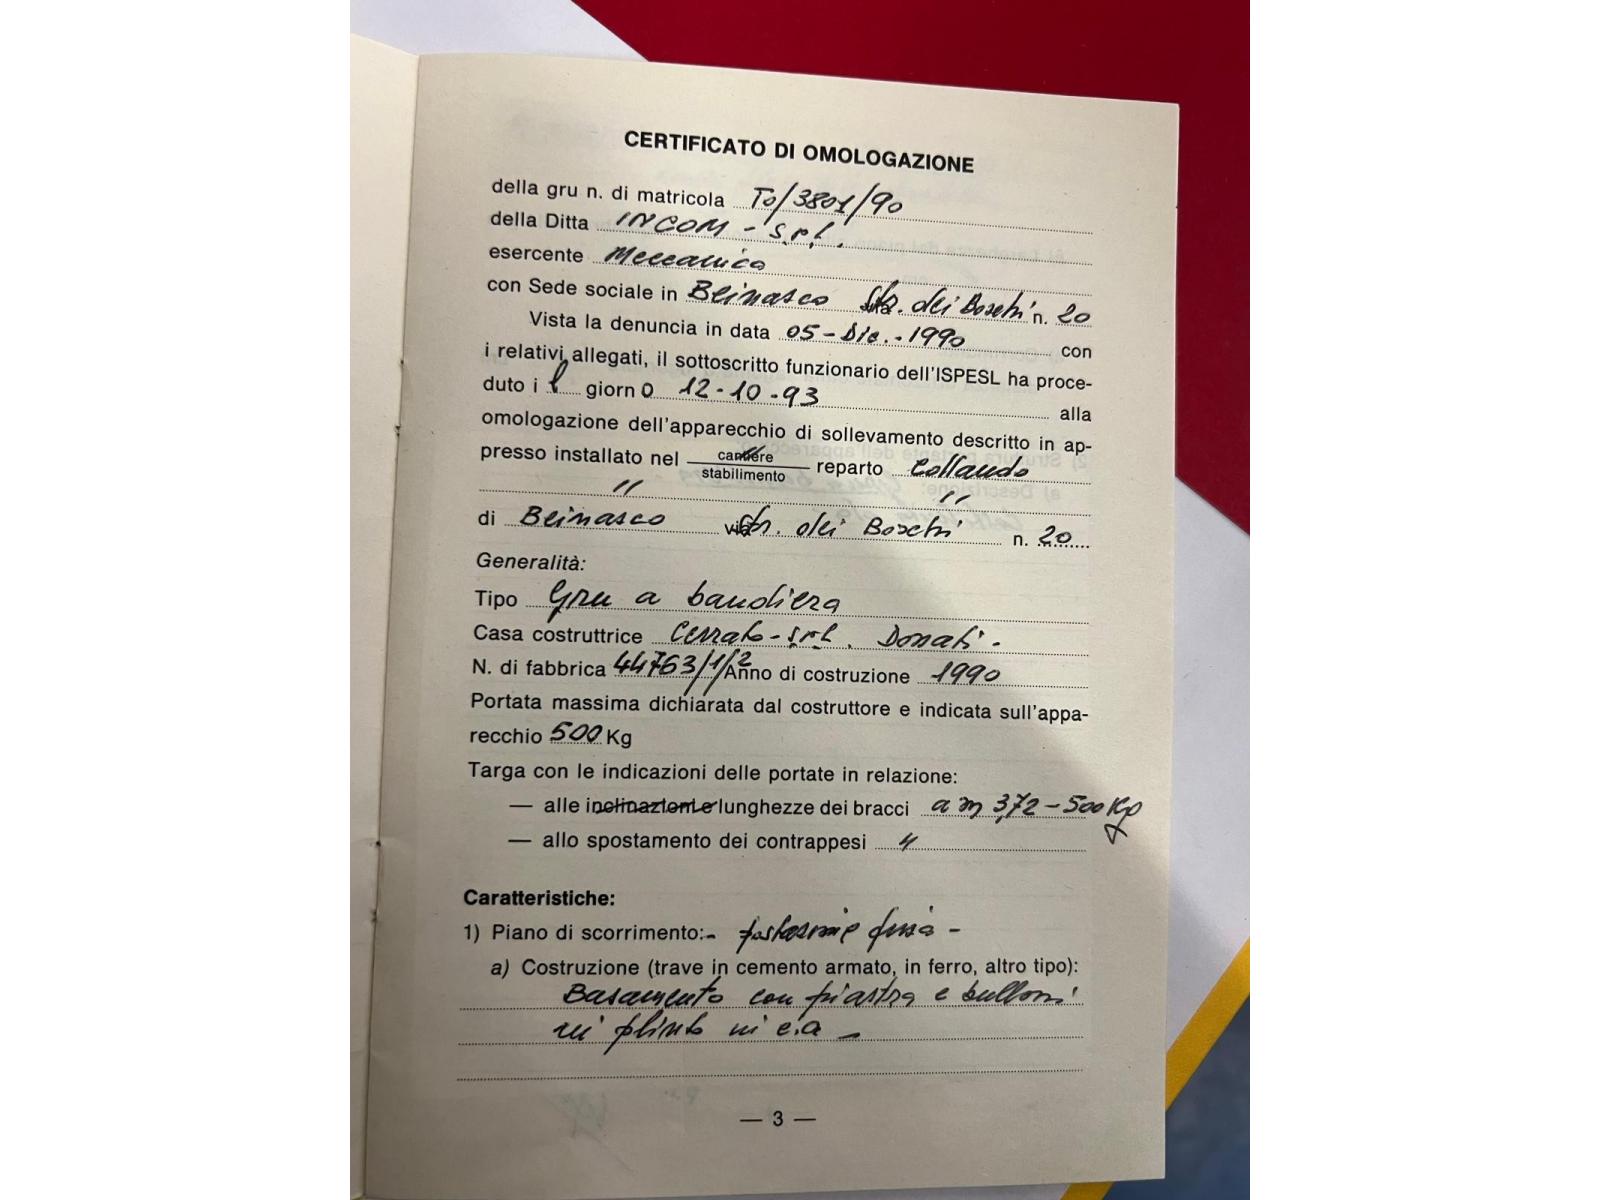 CERTIFICATO DI OMOLOGAZIONE
della gru n. di matricola To/3801/90
della Ditta INCOM - s.r.l.
esercente Meccanica
con Sede sociale in Beinasco str. dei Boschi n. 20
Vista la denuncia in data 05-Dic.-1990 con
i relativi allegati, il sottoscritto funzionario dell'ISPESL ha proce-
duto i l giorn o 12-10-93 alla
omologazione dell'apparecchio di sollevamento descritto in ap-
presso installato nel cantiere reparto Collaudo
stabilimento
" "
di Beinasco via str. dei Boschi n. 20
Generalità:
Tipo Gru a bandiera
Casa costruttrice Cerrato-srl. Donati-
N. di fabbrica 44763/1/2 Anno di costruzione 1990
Portata massima dichiarata dal costruttore e indicata sull'appa-
recchio 500 Kg
Targa con le indicazioni delle portate in relazione:
— alle inclinazioni e lunghezze dei bracci a m 3,72-500 Kg
— allo spostamento dei contrappesi "
Caratteristiche:
1) Piano di scorrimento:- postazione fissa -
a) Costruzione (trave in cemento armato, in ferro, altro tipo):
Basamento con piastra e bulloni
in plinto in c.a -
— 3 —